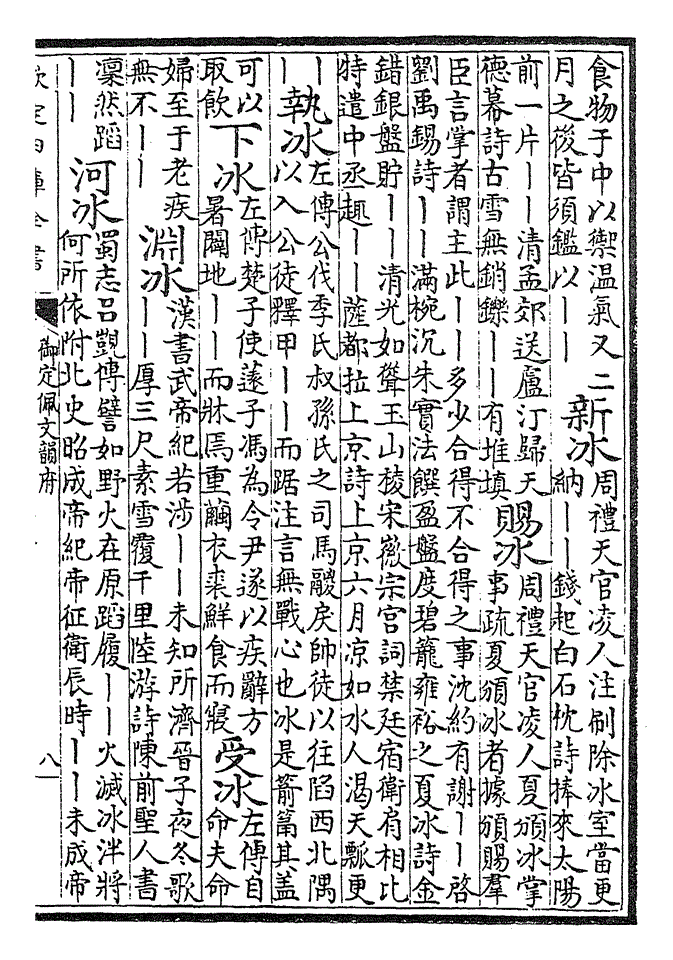 食物于中以禦溫氣又二
月之後皆須鑑以丨丨
新冰
周禮天官凌人注刷除冰室當更
納丨丨錢起白石枕詩捧來太陽
前一片丨丨清孟郊送盧汀歸天
德幕詩古雪無銷鑠丨丨有堆填
賜冰
周禮天官凌人夏頒冰掌
事疏夏頒冰者據頒賜羣
臣言掌者謂主此丨丨多少合得不合得之事沈約有謝丨丨啓
劉禹錫詩丨丨滿椀沉朱實法饌盈盤度碧籠雍裕之夏冰詩金
錯銀盤貯丨丨清光如聳玉山稜宋徽宗宫詞禁廷宿衛肩相比
特遣中丞趣丨丨薩都拉上京詩上京六月凉如水人渴天瓢更
丨
丨
執冰
左傳公伐季氏叔孫氏之司馬鬷戾帥徒以往陷西北隅
以入公徒釋甲丨丨而踞注言無戰心也冰是箭筩其蓋
可以
取飲
下冰
左傳楚子使薳子馮為令尹遂以疾辭方
暑闕地丨丨而牀焉重繭衣裘鮮食而寢
受冰
左傳自
命夫命
婦至于老疾
無不丨丨
淵冰
漢書武帝紀若涉丨丨未知所濟晉子夜冬歌
丨丨厚三尺素雪覆千里陸游詩陳前聖人書
凜然蹈
丨丨
河冰
蜀志吕覬傳譬如野火在原蹈履丨丨火滅冰泮將
何所依附北史昭成帝紀帝征衛辰時丨丨未成帝
欽定四庫全書
御定佩文韻府
八